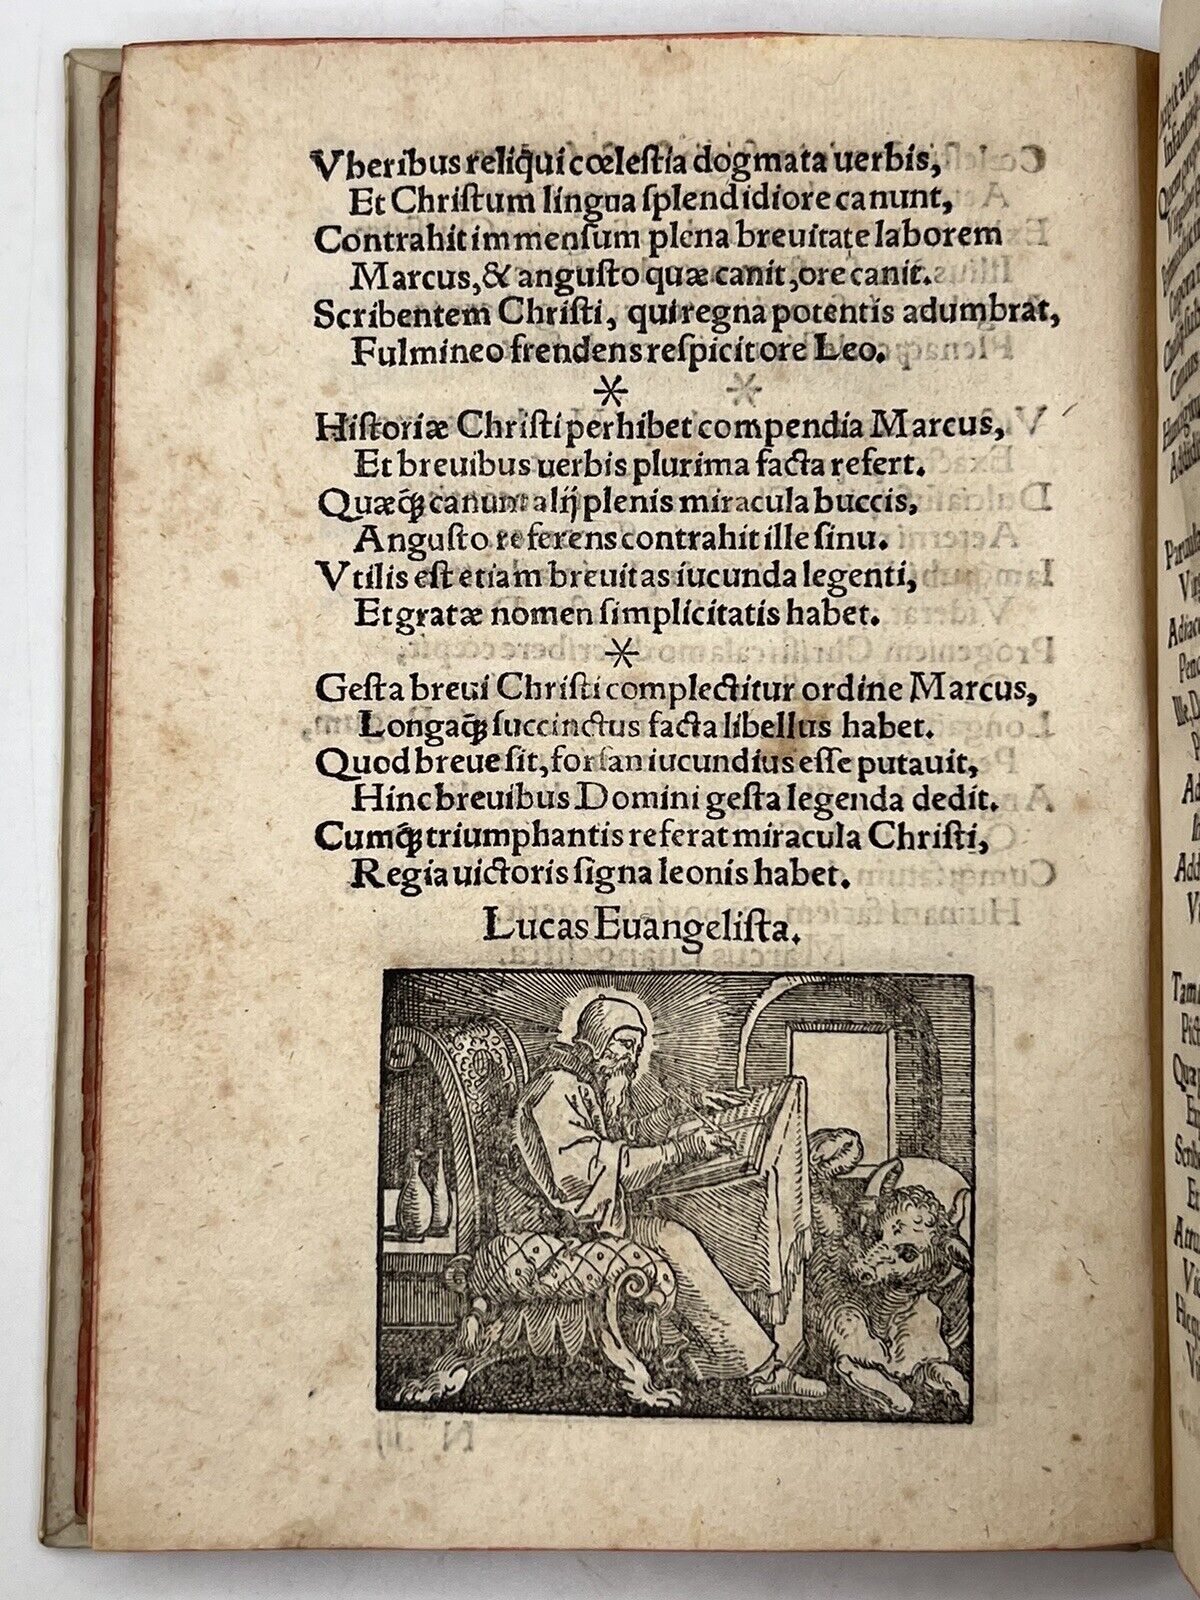 Vberibus reliqui cœleſtia dogmata uerbis,
Et Chriſtum lingua ſplendidiore canunt,
Contrahit immenſum plena breuitate laborem
Marcus, & anguſto quæ canit, ore canit.
Scribentem Chriſti, qui regna potentis adumbrat,
Fulmineo frendens reſpicit ore Leo.
*
Hiſtoriæ Chriſti perhibet compendia Marcus,
Et breuibus uerbis plurima facta refert.
Quæq́ꝫ canunt alij plenis miracula buccis,
Anguſto referens contrahit ille ſinu.
Vtilis eſt etiam breuitas iucunda legenti,
Et gratæ nomen ſimplicitatis habet.
*
Geſta breui Chriſti complectitur ordine Marcus,
Longaq́ꝫ ſuccinctus facta libellus habet.
Quod breue ſit, forſan iucundius eſſe putauit,
Hinc breuibus Domini geſta legenda dedit.
Cumq́ꝫ triumphantis referat miracula Chriſti,
Regia uictoris ſigna leonis habet.
Lucas Euangeliſta.